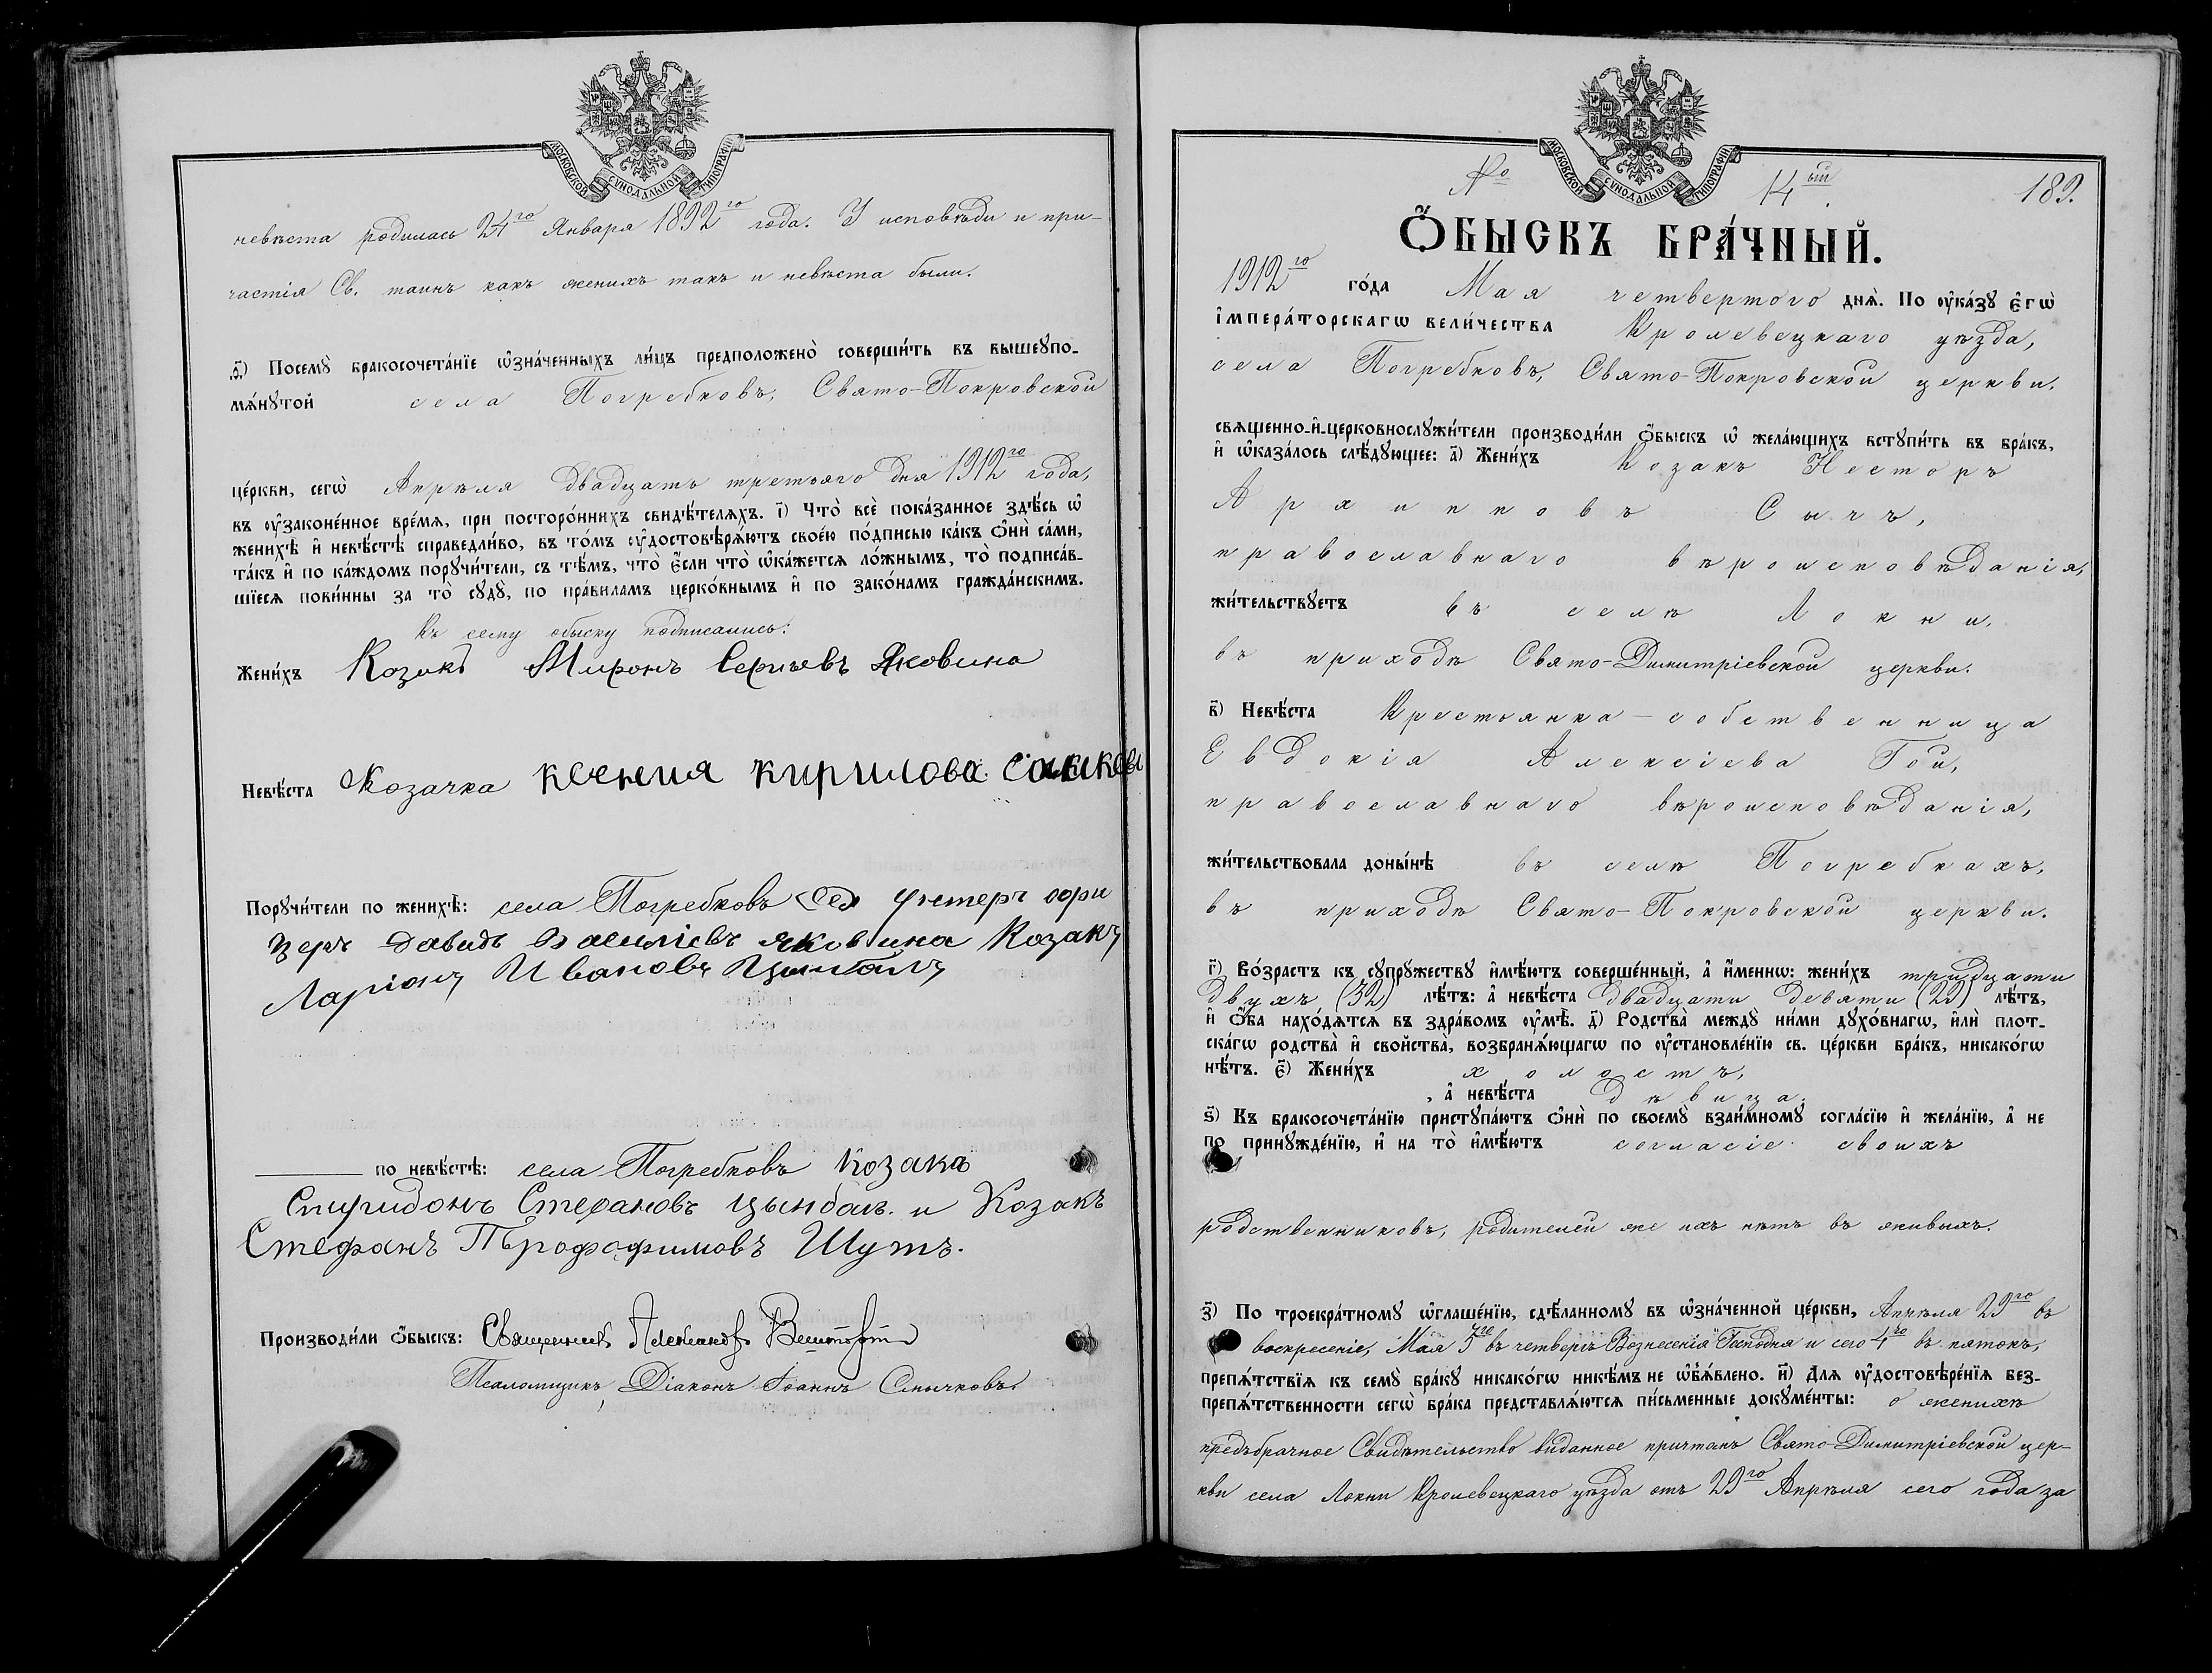 МОСКОВСКОЙ СѴНОДАЛЬНОЙ ТИПОГРАФІИ
невѣста родилась 24го Января 1892го года. У исповѣди и при-
частія Св. таинъ какъ женихъ такъ и невѣста были.
Посемꙋ̀ бракосочета́нїе ѡ҆зна́ченныхъ ли́цъ предположено̀ соверши́ть въ вышеꙋпо-
мѧ́нꙋтой села Погребковъ, Свято-Покровской
це́ркви, сегѡ̀ Апрѣля двадцать третьяго дня 1912го года,
въ ᲂу҆законе́нное вре́мѧ, при посторо́ннихъ свидѣ́телѧхъ. і҃) Что̀ всѐ пока́занное здѣ́сь ѡ҆
женихѣ̀ и҆ невѣ́стѣ справедли́во, въ то́мъ ᲂу҆достовѣрѧ́ютъ свое́ю по́дписью ка́къ ѻ҆нѝ са́ми,
та́къ и҆ по ка́ждомъ порꙋчи́тели, съ тѣ́мъ, что̀ є҆́сли что̀ ѡ҆ка́жетсѧ ло́жнымъ, то̀ подписа́в-
шїесѧ пови́нны за то̀ сꙋдꙋ̀, по пра́виламъ церко́внымъ и҆ по зако́намъ гражда́нскимъ.
Къ сему обыску подписались:
Жени́хъ Козакъ Миронъ Сергѣевъ Яковина
Невѣ́ста Козачка Ксенія Кирилова
Порꙋчи́тели по женихѣ̀: села Погребковъ унтеръ офи
церъ Давидъ Василіевъ Яковина Козакъ
Ларіонъ Ивановъ Цымбалъ
по невѣ́стѣ: села Погребковъ Козакъ
Спиридонъ Стефановъ Цымбалъ и Козакъ
Стефанъ Шутъ.
Производи́ли ѻ҆́быскъ: Священникъ
Псаломщикъ, Діаконъ Іоаннъ Смычковъ.
МОСКОВСКОЙ СѴНОДАЛЬНОЙ ТИПОГРАФІИ
№ 14ый 189.
Ѻ҆́БЫСКЪ БРА́ЧНЫЙ.
1912го го́да Мая четвертого днѧ̀. По ᲂу҆ка́зꙋ є҆гѡ̀
і҆мпера́торскагѡ вели́чества Кролевецкаго уѣзда,
села Погребковъ, Свято-Покровской церкви.
свѧщенно-и҆-церковнослꙋжи́тели производи́ли ѻ҆́быскъ ѡ҆ жела́ющихъ встꙋпи́ть въ бра́къ,
и҆ ѡ҆каза́лось слѣ́дꙋющее: а҃) Жени́хъ Козакъ Несторъ
Архиповъ Сычъ,
православнаго вѣроисповѣданія,
жи́тельствꙋетъ въ селѣ Локни,
въ приходѣ Свято-Димитріевской церкви.
в҃) Невѣ́ста Крестьянка-собственница
Евдокія Алексіева Гой,
православнаго вѣроисповѣданія,
жи́тельствовала доны́нѣ въ селѣ Погребкахъ,
въ приходѣ Свято-Покровской церкви.
г҃) Во́зрастъ къ сꙋпрꙋ́жествꙋ и҆мѣ́ютъ соверше́нный, а҆ и҆́меннѡ: жени́хъ тридцати
двухъ (32) лѣ́тъ: а҆ невѣ́ста двадцати девяти (29) лѣ́тъ,
и҆ ѻ҆́ба нахо́дѧтсѧ въ здра́вомъ ᲂу҆мѣ̀. д҃) Родства̀ междꙋ̀ ни́ми дꙋхо́внагѡ, и҆лѝ плот-
ска́гѡ родства̀ и҆ сво́йства, возбранѧ́ющагѡ по ᲂу҆становле́нїю св. це́ркви бра́къ, никако́гѡ
нѣ́тъ. є҃) Жени́хъ холостъ,
, а҆ невѣ́ста дѣвица.
ѕ҃) Къ бракосочета́нїю пристꙋпа́ютъ ѻ҆нѝ по своемꙋ̀ взаи́мномꙋ согла́сїю и҆ жела́нїю, а҆ не
по принꙋжде́нїю, и҆ на то̀ и҆мѣ́ютъ согласіе своихъ
родственниковъ, родителей же ихъ нѣтъ въ живыхъ.
з҃) По троекра́тномꙋ ѡ҆глаше́нїю, сдѣ́ланномꙋ въ ѡ҆зна́ченной це́ркви, Апрѣля 29го въ
воскресеніе, Мая 3го въ четвергъ "Вознесенія" Господня и сего 4го въ пятокъ,
препѧ́тствїѧ къ семꙋ̀ бра́кꙋ никако́гѡ никѣ́мъ не ѡ҆б̾ѧ́влено. и҃) Длѧ ᲂу҆достовѣре́нїѧ без-
препѧ́тственности сегѡ̀ бра́ка представлѧ́ютсѧ пи́сьменные докꙋме́нты: о женихѣ
предъбрачное Свидѣтельство виданное причтомъ Свято-Димитріевской цер-
кви села Локни Кролевецкаго уѣзда отъ 29го Апрѣля сего года за